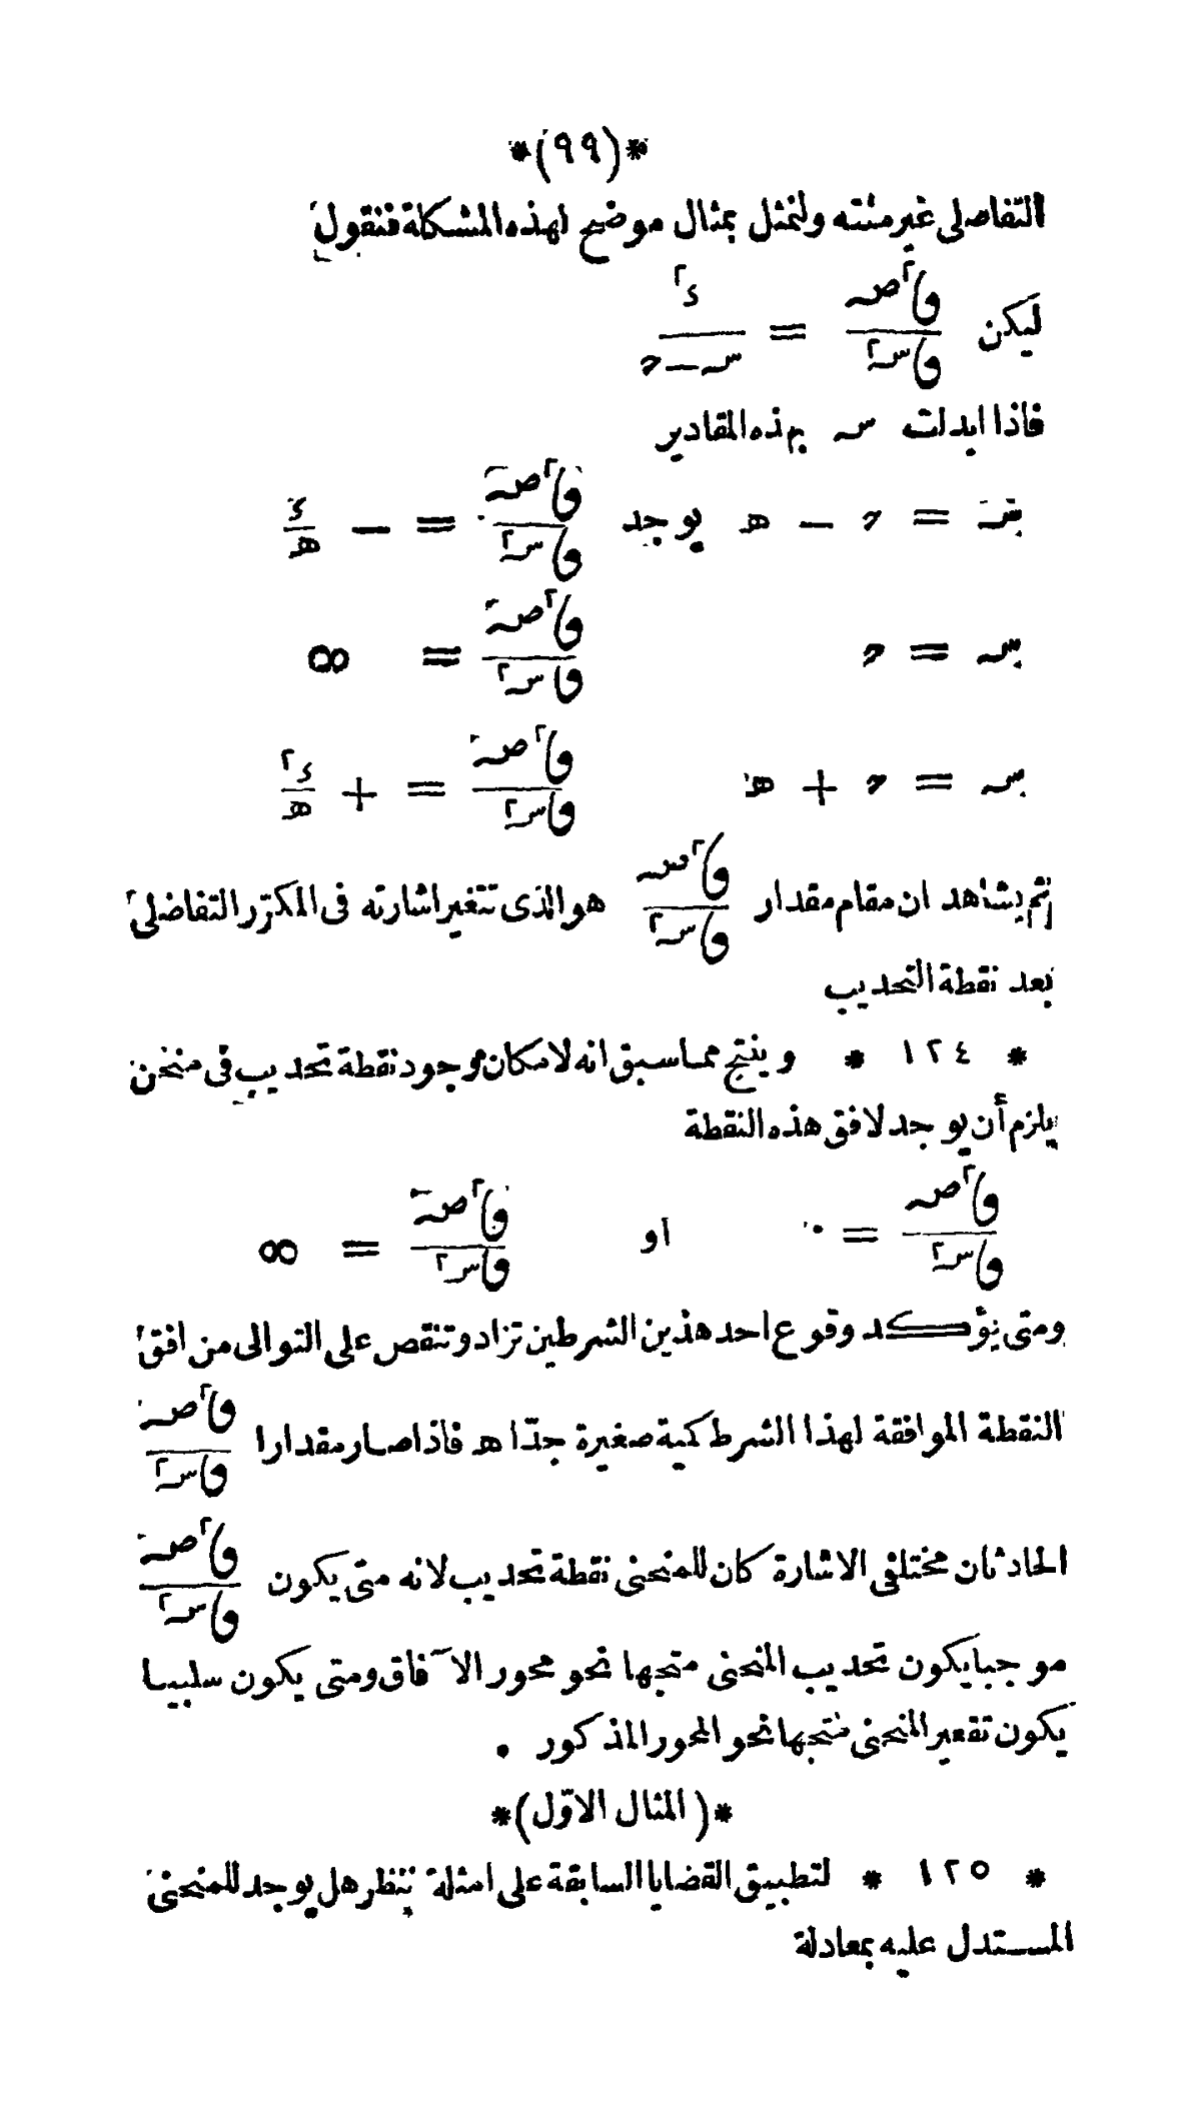 *(٩٩)*
التفاضلى غير مثته ولنمثل بمثال موضح لهذه المشكلة فنقول
ليكن ف٢صہ/فسہ٢ = ء٢/(سہ − ح)
فاذا ابدلت سہ بهذه المقادير
بقہ = ح − ھ يوجد ف٢صہ/فسہ٢ = − ء/ھ
سہ = ح ف٢صہ/فسہ٢ = ∞
سہ = ح + ھ ف٢صہ/فسہ٢ = + ء٢/ھ
ثم يشاهد ان مقام مقدار ف٢صہ/فسہ٢ هو الذى تتغير اشارته فى المكرّر التفاضلى
بعد نقطة التحديب
* ١٢٤ * وينتج مما سبق انه لامكان وجود نقطة تحديب فى منحن
يلزم أن يوجد لافق هذه النقطة
ف٢صہ/فسہ٢ = ٠ او ف٢صہ/فسہ٢ = ∞
ومتى يؤكد وقوع احد هذين الشرطين تزاد وتنقص على التوالى من افق
النقطة الموافقة لهذا الشرط كمية صغيرة جدّا ھ فاذا صار مقدارا ف٢صہ/فسہ٢
الحادثان مختلفى الاشارة كان للمنحنى نقطة تحديب لانه متى يكون ف٢صہ/فسہ٢
موجبا يكون تحديب المنحنى متجها نحو محور الآفاق ومتى يكون سلبيا
يكون تقعير المنحنى متجها نحو المحور المذكور .
*(المثال الاوّل)*
* ١٢٥ * لتطبيق القضايا السابقة على امثلة ننظر هل يوجد للمنحنى
المستدل عليه بمعادلة